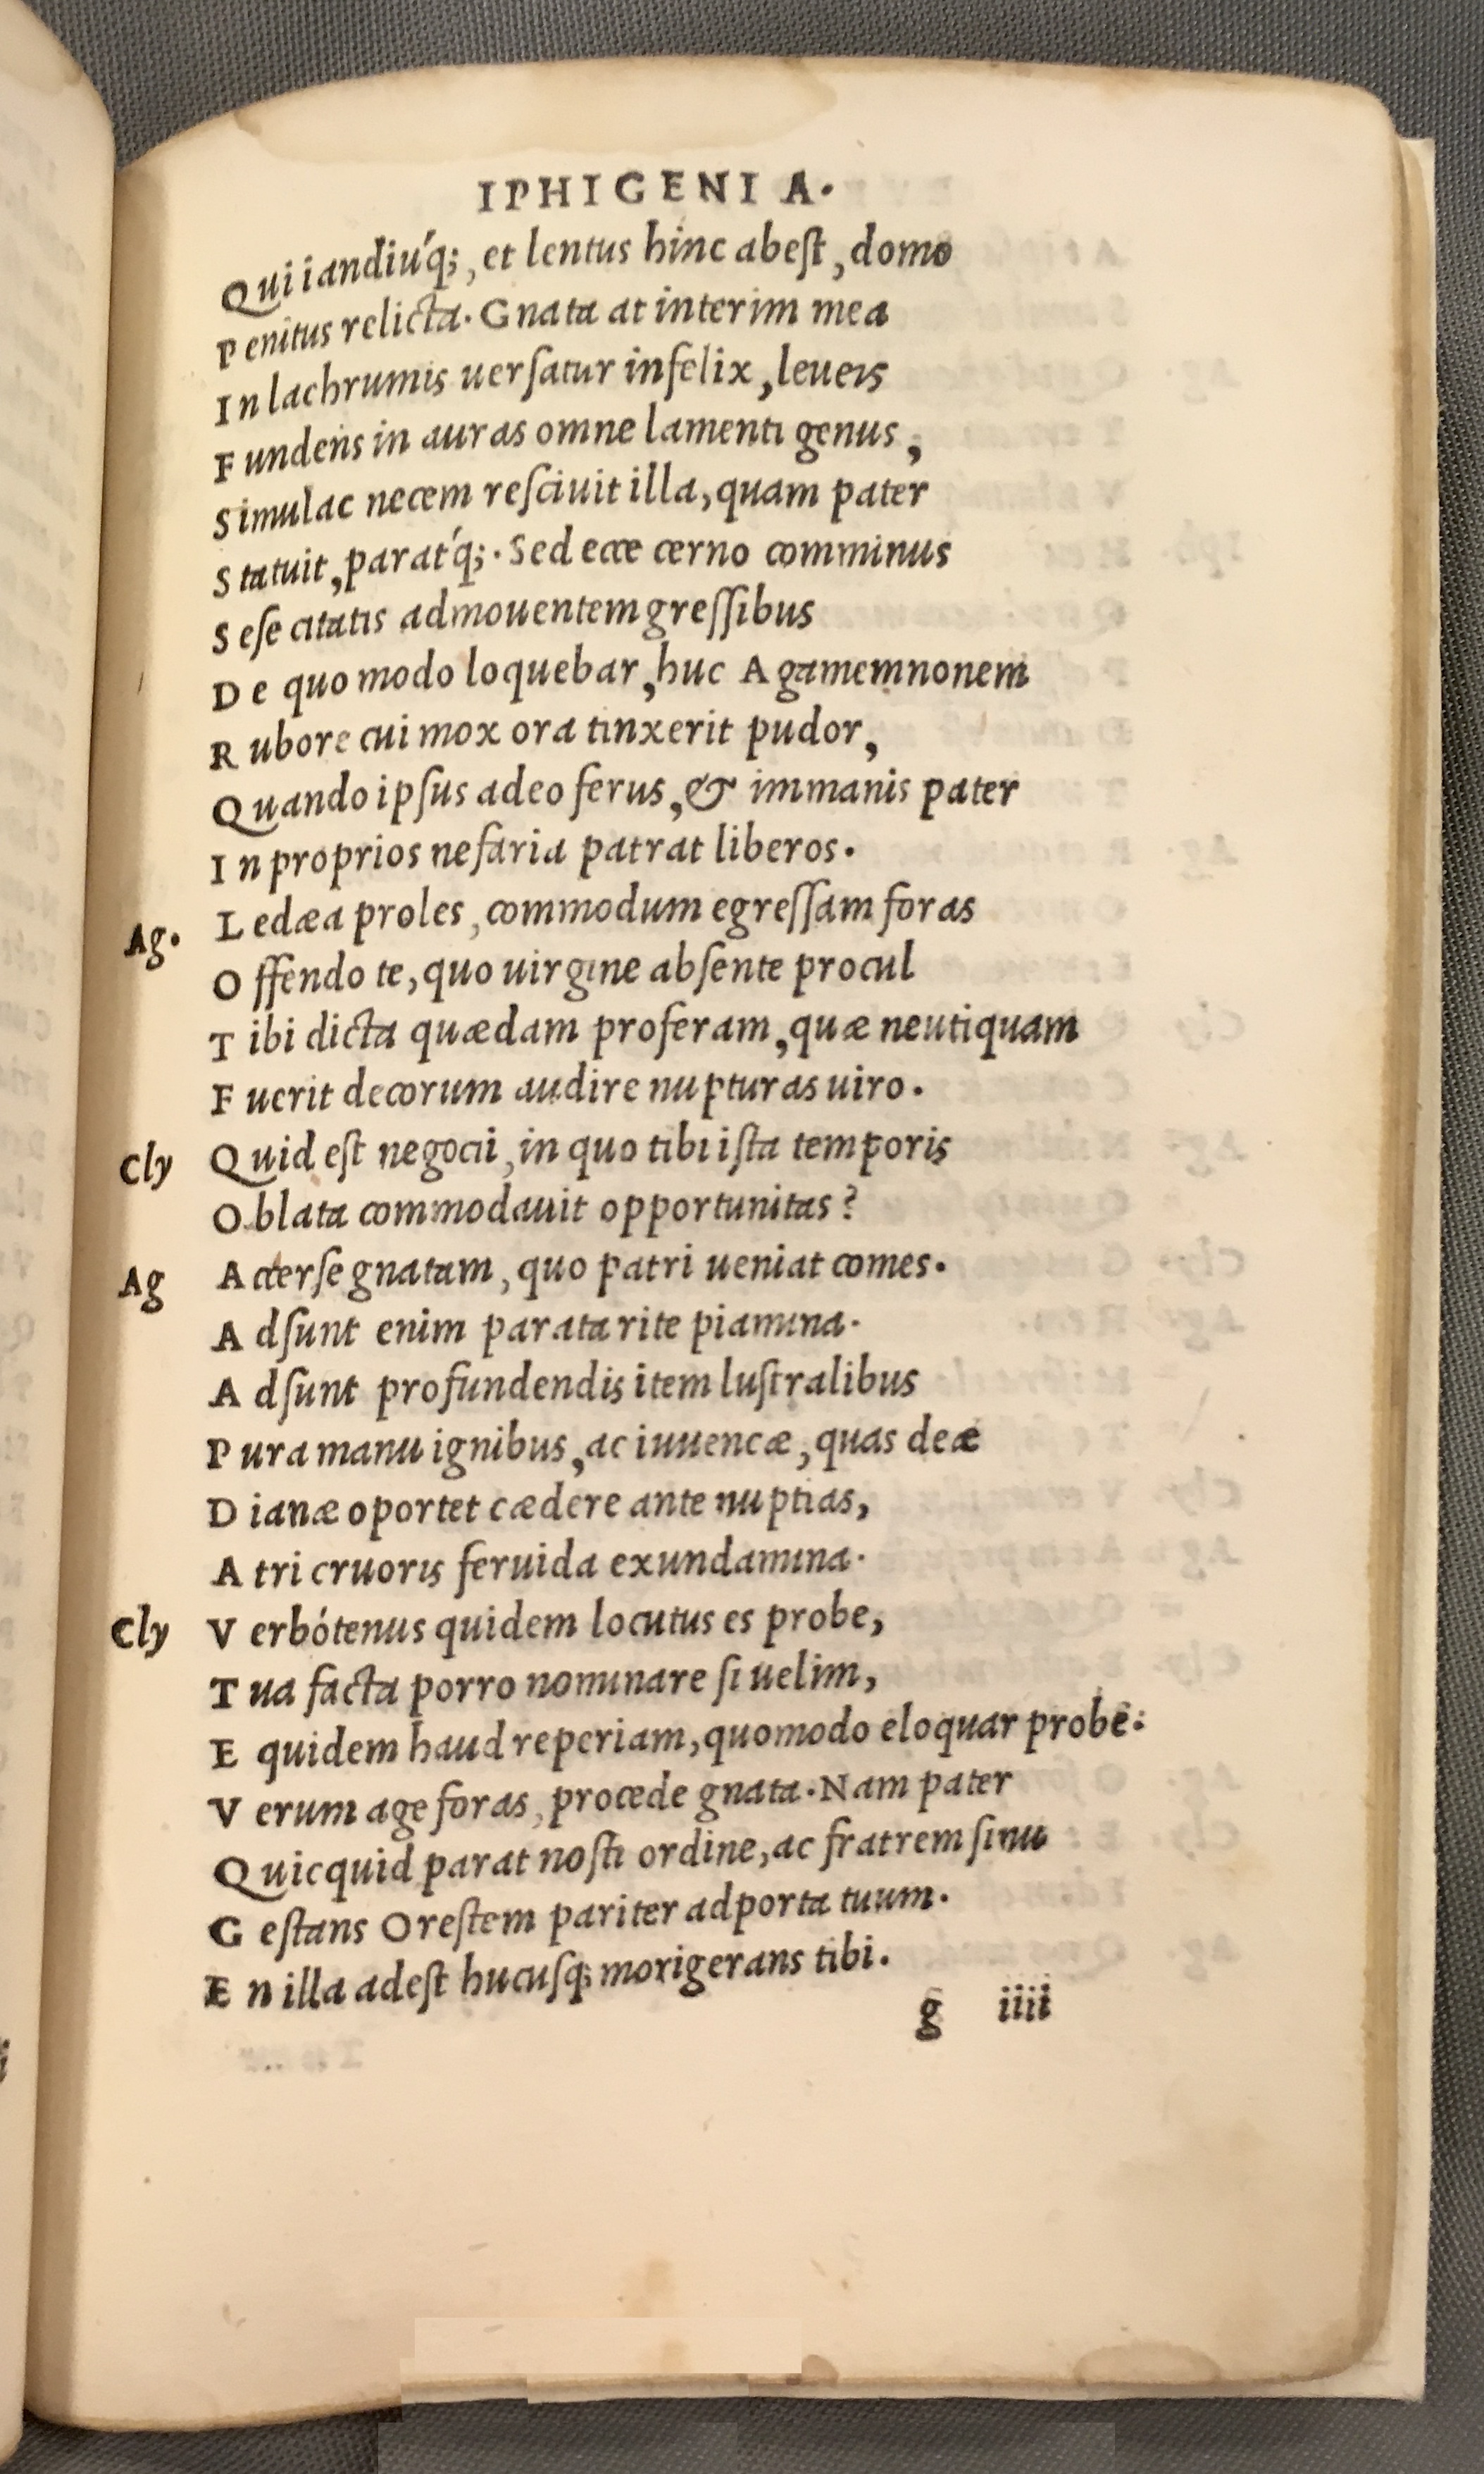 IPHIGENIA.
Qui iandiu´q;, et lentus hinc abest, domo
Penitus relicta. Gnata at interim mea
In lachrumis uersatur infelix, leueis
Fundens in auras omne lamenti genus,
Simulac necem resciuit illa, quam pater
Statuit, parat´q;. Sed ecce cerno comminus
Sese citatis admouentem gressibus
De quo modo loquebar, huc Agamemnonem
Rubore cui mox ora tinxerit pudor,
Quando ipsus adeo ferus, & immanis pater
In proprios nefaria patrat liberos.
Ag. Ledæa proles, commodum egressam foras
Offendo te, quo uirgine absente procul
Tibi dicta quædam proferam, quæ neutiquam
Fuerit decorum audire nupturas uiro.
Cly Quid est negocii, in quo tibi ista temporis
Oblata commodauit opportunitas?
Ag Accerse gnatam, quo patri ueniat comes.
Adsunt enim parata rite piamina.
Adsunt profundendis item lustralibus
Pura manu ignibus, ac iuuencæ, quas deæ
Dianæ oportet cædere ante nuptias,
Atri cruoris feruida exundamina.
Cly Verbótenus quidem locutus es probe,
Tua facta porro nominare si uelim,
Equidem haud reperiam, quomodo eloquar probe:
Verum age foras, procede gnata. Nam pater
Quicquid parat nosti ordine, ac fratrem sinu
Gestans Orestem pariter adporta tuum.
En illa adest hucusq; morigerans tibi.
g iiii